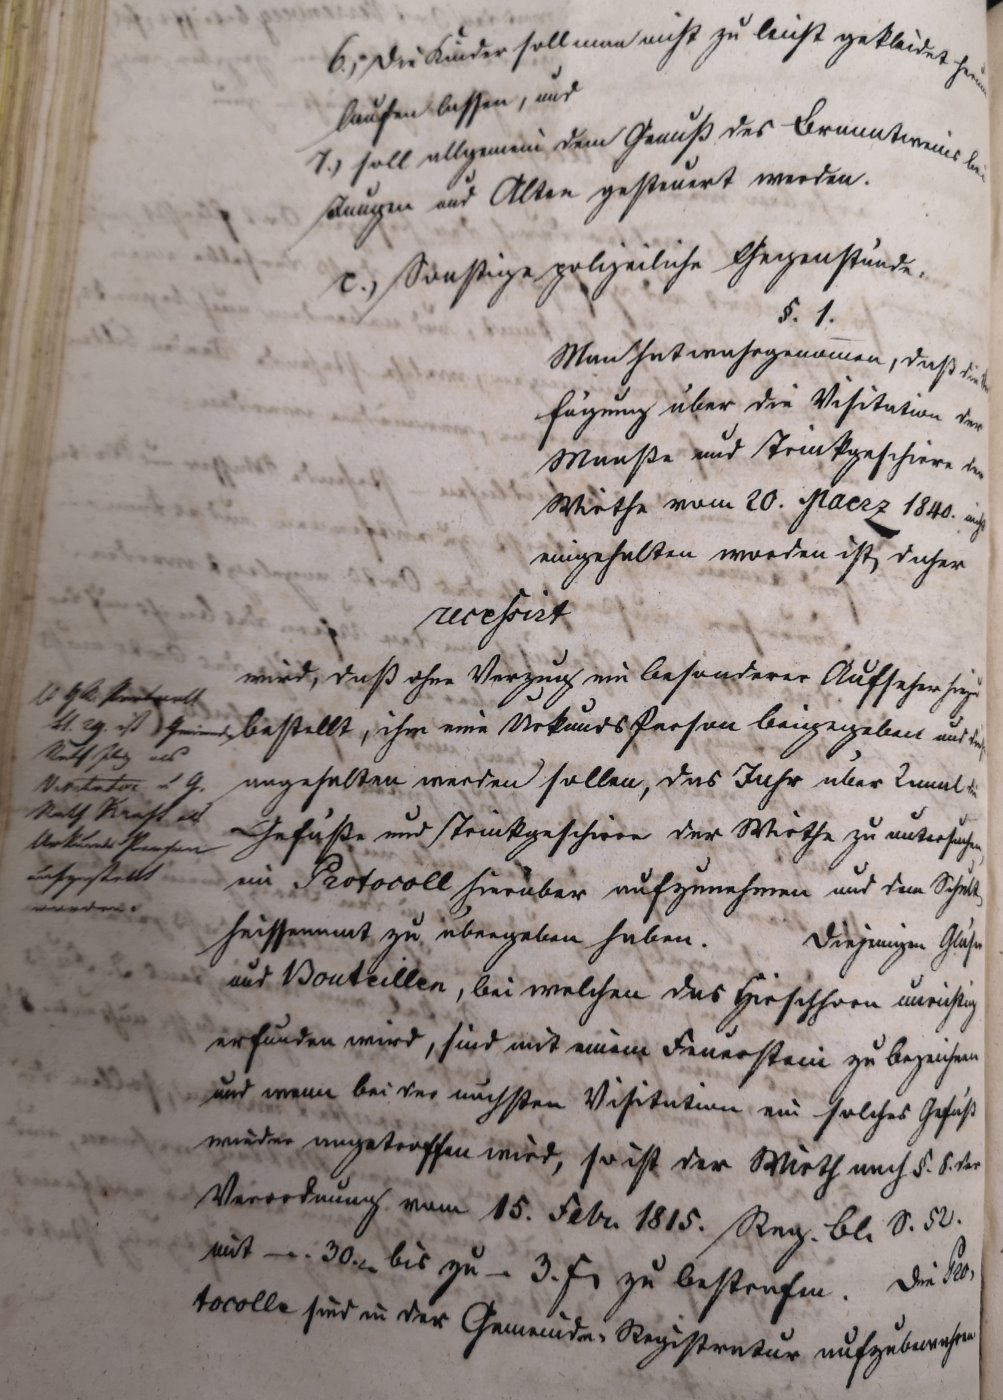 6., Die Kinder soll man nicht zu leicht gekleidet herum
laufen lassen, und
7.) soll allgemein dem Genuß des Branntweins bei
Jungen und Alten gesteuert werden.
c.) Sonstige polizeiliche Gegenstände.
§. 1.
Man hat wahrgenommen, daß die Ver
fügung über die Visitation der
Maaße und Trinkgeschirre der
Wirthe vom 20. Maerz 1840. nicht
eingehalten worden ist, daher
recessirt
wird, daß ohne Verzug ein besonderer Aufseher hiezu
bestellt, ihm eine Urkunds Person beigegeben und diese
angehalten werden sollen, das Jahr über 2mal die
Gefäße und Trinkgeschirre der Wirthe zu untersuchen,
ein Protocoll hierüber aufzunehmen und dem Schult
heissenamt zu übergeben haben. Diejenigen Gläser
und Bouteillen, bei welchen das Hirschhorn unrichtig
erfunden wird, sind mit einem Feuerstein zu bezeichnen
und wenn bei der nächsten Visitation ein solches Gefäß
wieder angetroffen wird, so ist der Wirth nach §. 8. der
Verordnung vom 15. Febr. 1815. Reg. Bl. S. 52.
mit 30. bis zu 3. f zu bestrafen. Die Pro,
tocolle sind in der Gemeinde-Registratur aufzubewahren
29. ist Gemeinde
Rath als
Visitator u G.
Rath Kraft als
Urkunds Person
aufgestellt
worden.